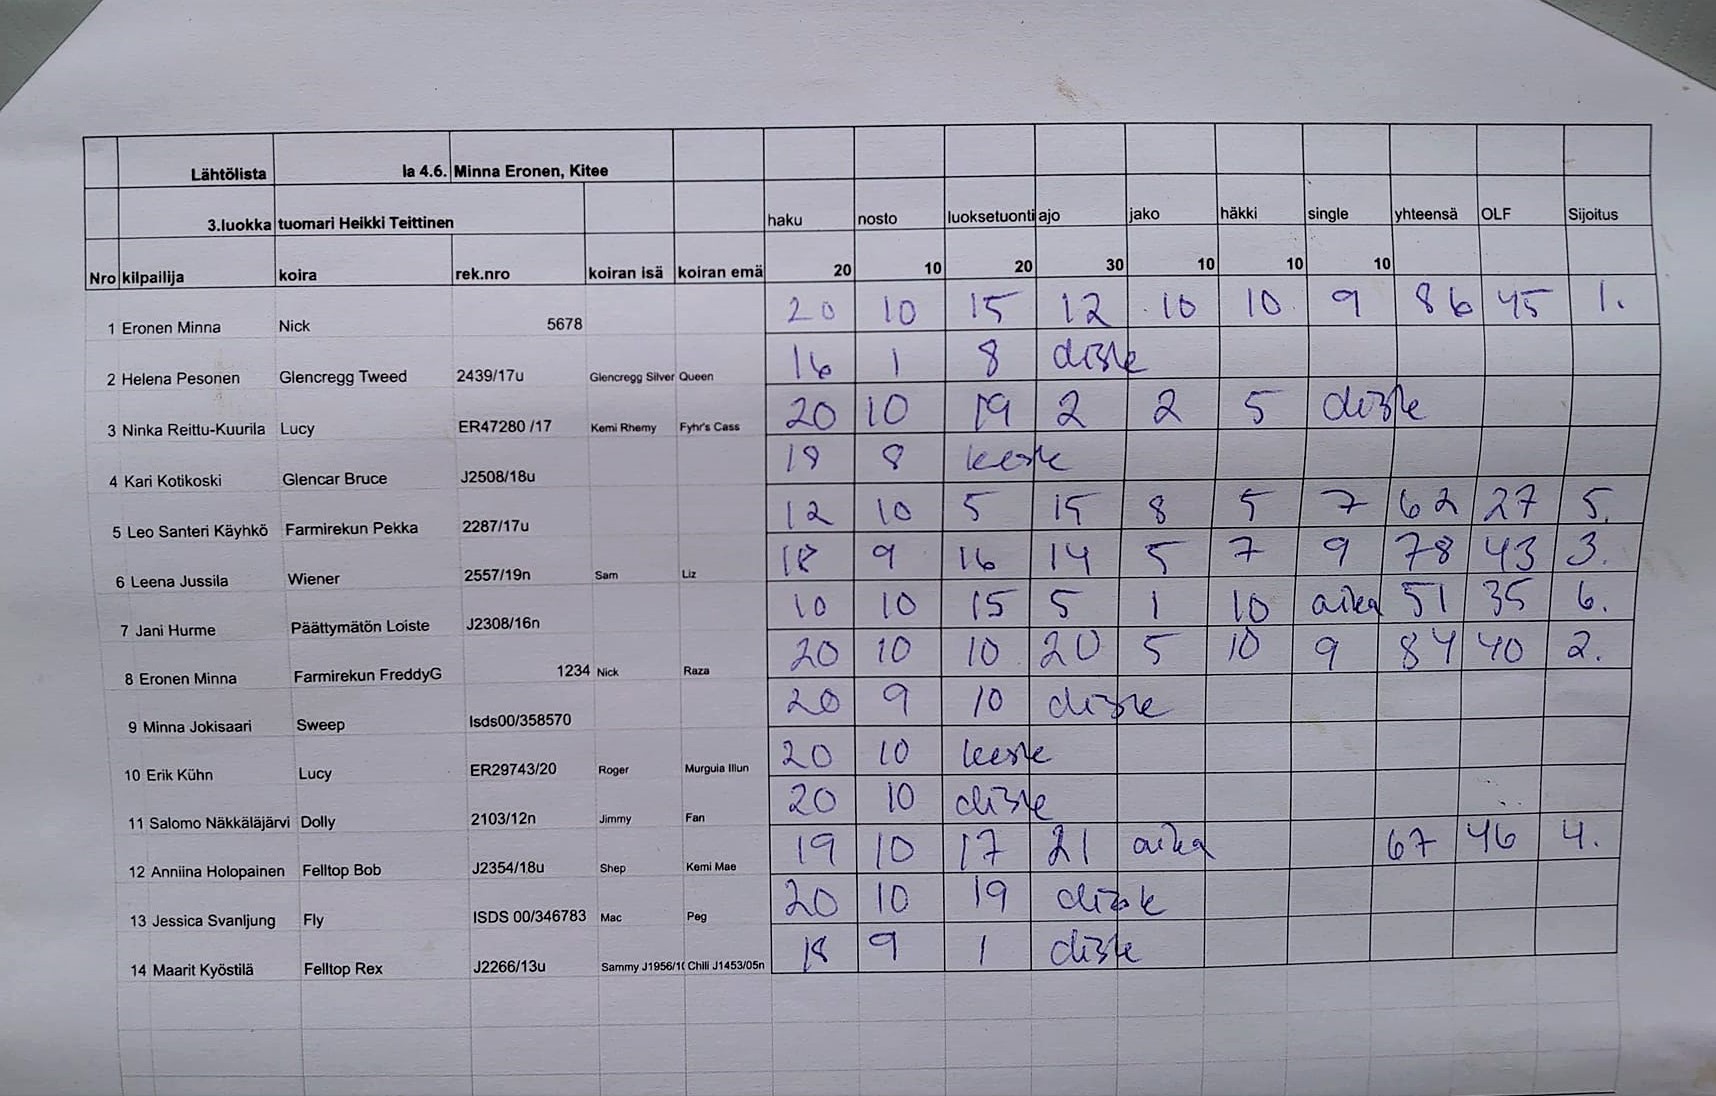 Lähtölista la 4.6. Minna Eronen, Kitee
3.luokka tuomari Heikki Teittinen haku nosto luoksetuonti ajo jako häkki single yhteensä OLF Sijoitus
Nro kilpailija koira rek.nro koiran isä koiran emä 20 10 20 30 10 10 10
1 Eronen Minna Nick 5678 20 10 15 12 10 10 9 86 45 1.
2 Helena Pesonen Glencregg Tweed 2439/17u Glencregg Silver Queen 16 1 8 diskk
3 Ninka Reittu-Kuurila Lucy ER47280 /17 Kemi Rhemy Fyhr's Cass 20 10 19 2 2 5 disk
4 Kari Kotikoski Glencar Bruce J2508/18u 19 8 kesk
5 Leo Santeri Käyhkö Farmirekun Pekka 2287/17u 12 10 5 15 8 5 7 62 27 5.
6 Leena Jussila Wiener 2557/19n Sam Liz 18 9 16 14 5 7 9 78 43 3.
7 Jani Hurme Päättymätön Loiste J2308/16n 10 10 15 5 1 10 aika 51 35 6.
8 Eronen Minna Farmirekun FreddyG 1234 Nick Raza 20 10 10 20 5 10 9 84 40 2.
9 Minna Jokisaari Sweep Isds00/358570 20 9 10 disk
10 Erik Kühn Lucy ER29743/20 Roger Murguia Illun 20 10 kesk
11 Salomo Näkkäläjärvi Dolly 2103/12n Jimmy Fan 20 10 disk
12 Anniina Holopainen Felltop Bob J2354/18u Shep Kemi Mae 19 10 17 21 aika 67 46 4.
13 Jessica Svanljung Fly ISDS 00/346783 Mac Peg 20 10 19 disk
14 Maarit Kyöstilä Felltop Rex J2266/13u Sammy J1956/1( Chili J1453/05n 18 9 1 disk